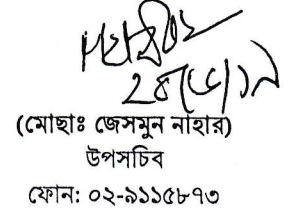 (মোছাঃ জেসমুন নাহার)
উপসচিব
ফোন: ০২-৯১১৫৮৭৩